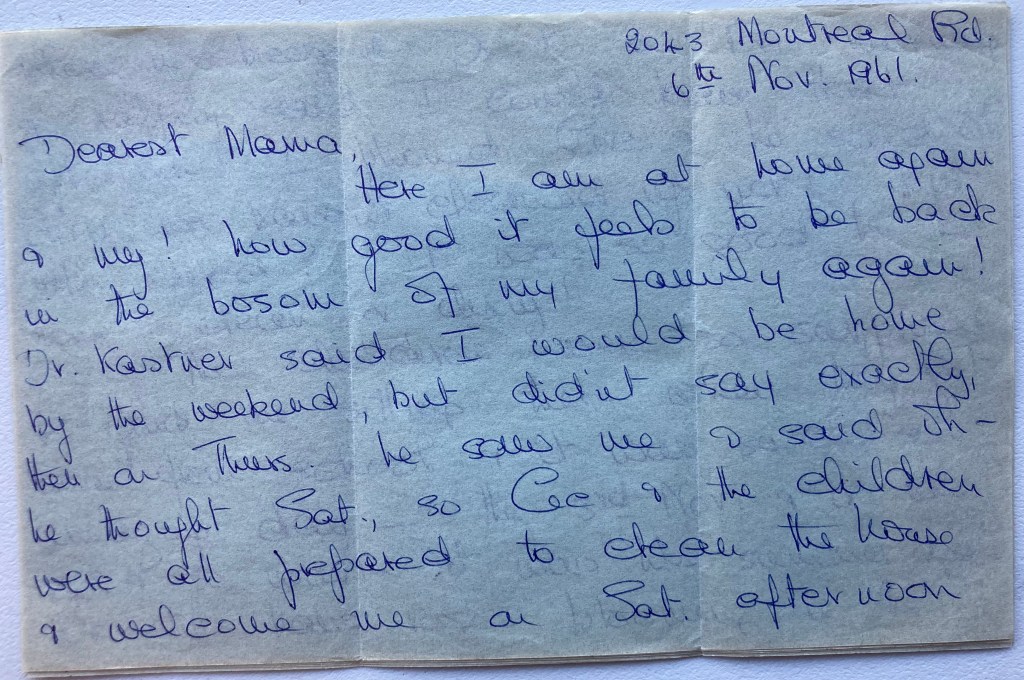 2043 Montreal Rd.
6th Nov. 1961.
Dearest Mama,
Here I am at home again
& my! how good it feels to be back
in the bosom of my family again!
Dr. Kastner said I would be home
by the weekend, but didn't say exactly,
then on Thurs. he saw me & said oh -
he thought Sat., so Cec & the children
were all prepared to clean the house
& welcome me on Sat. afternoon